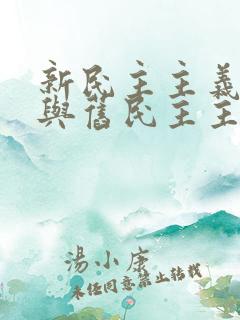 新民主主義
與舊民主主
湯小康
未經同意禁止轉載